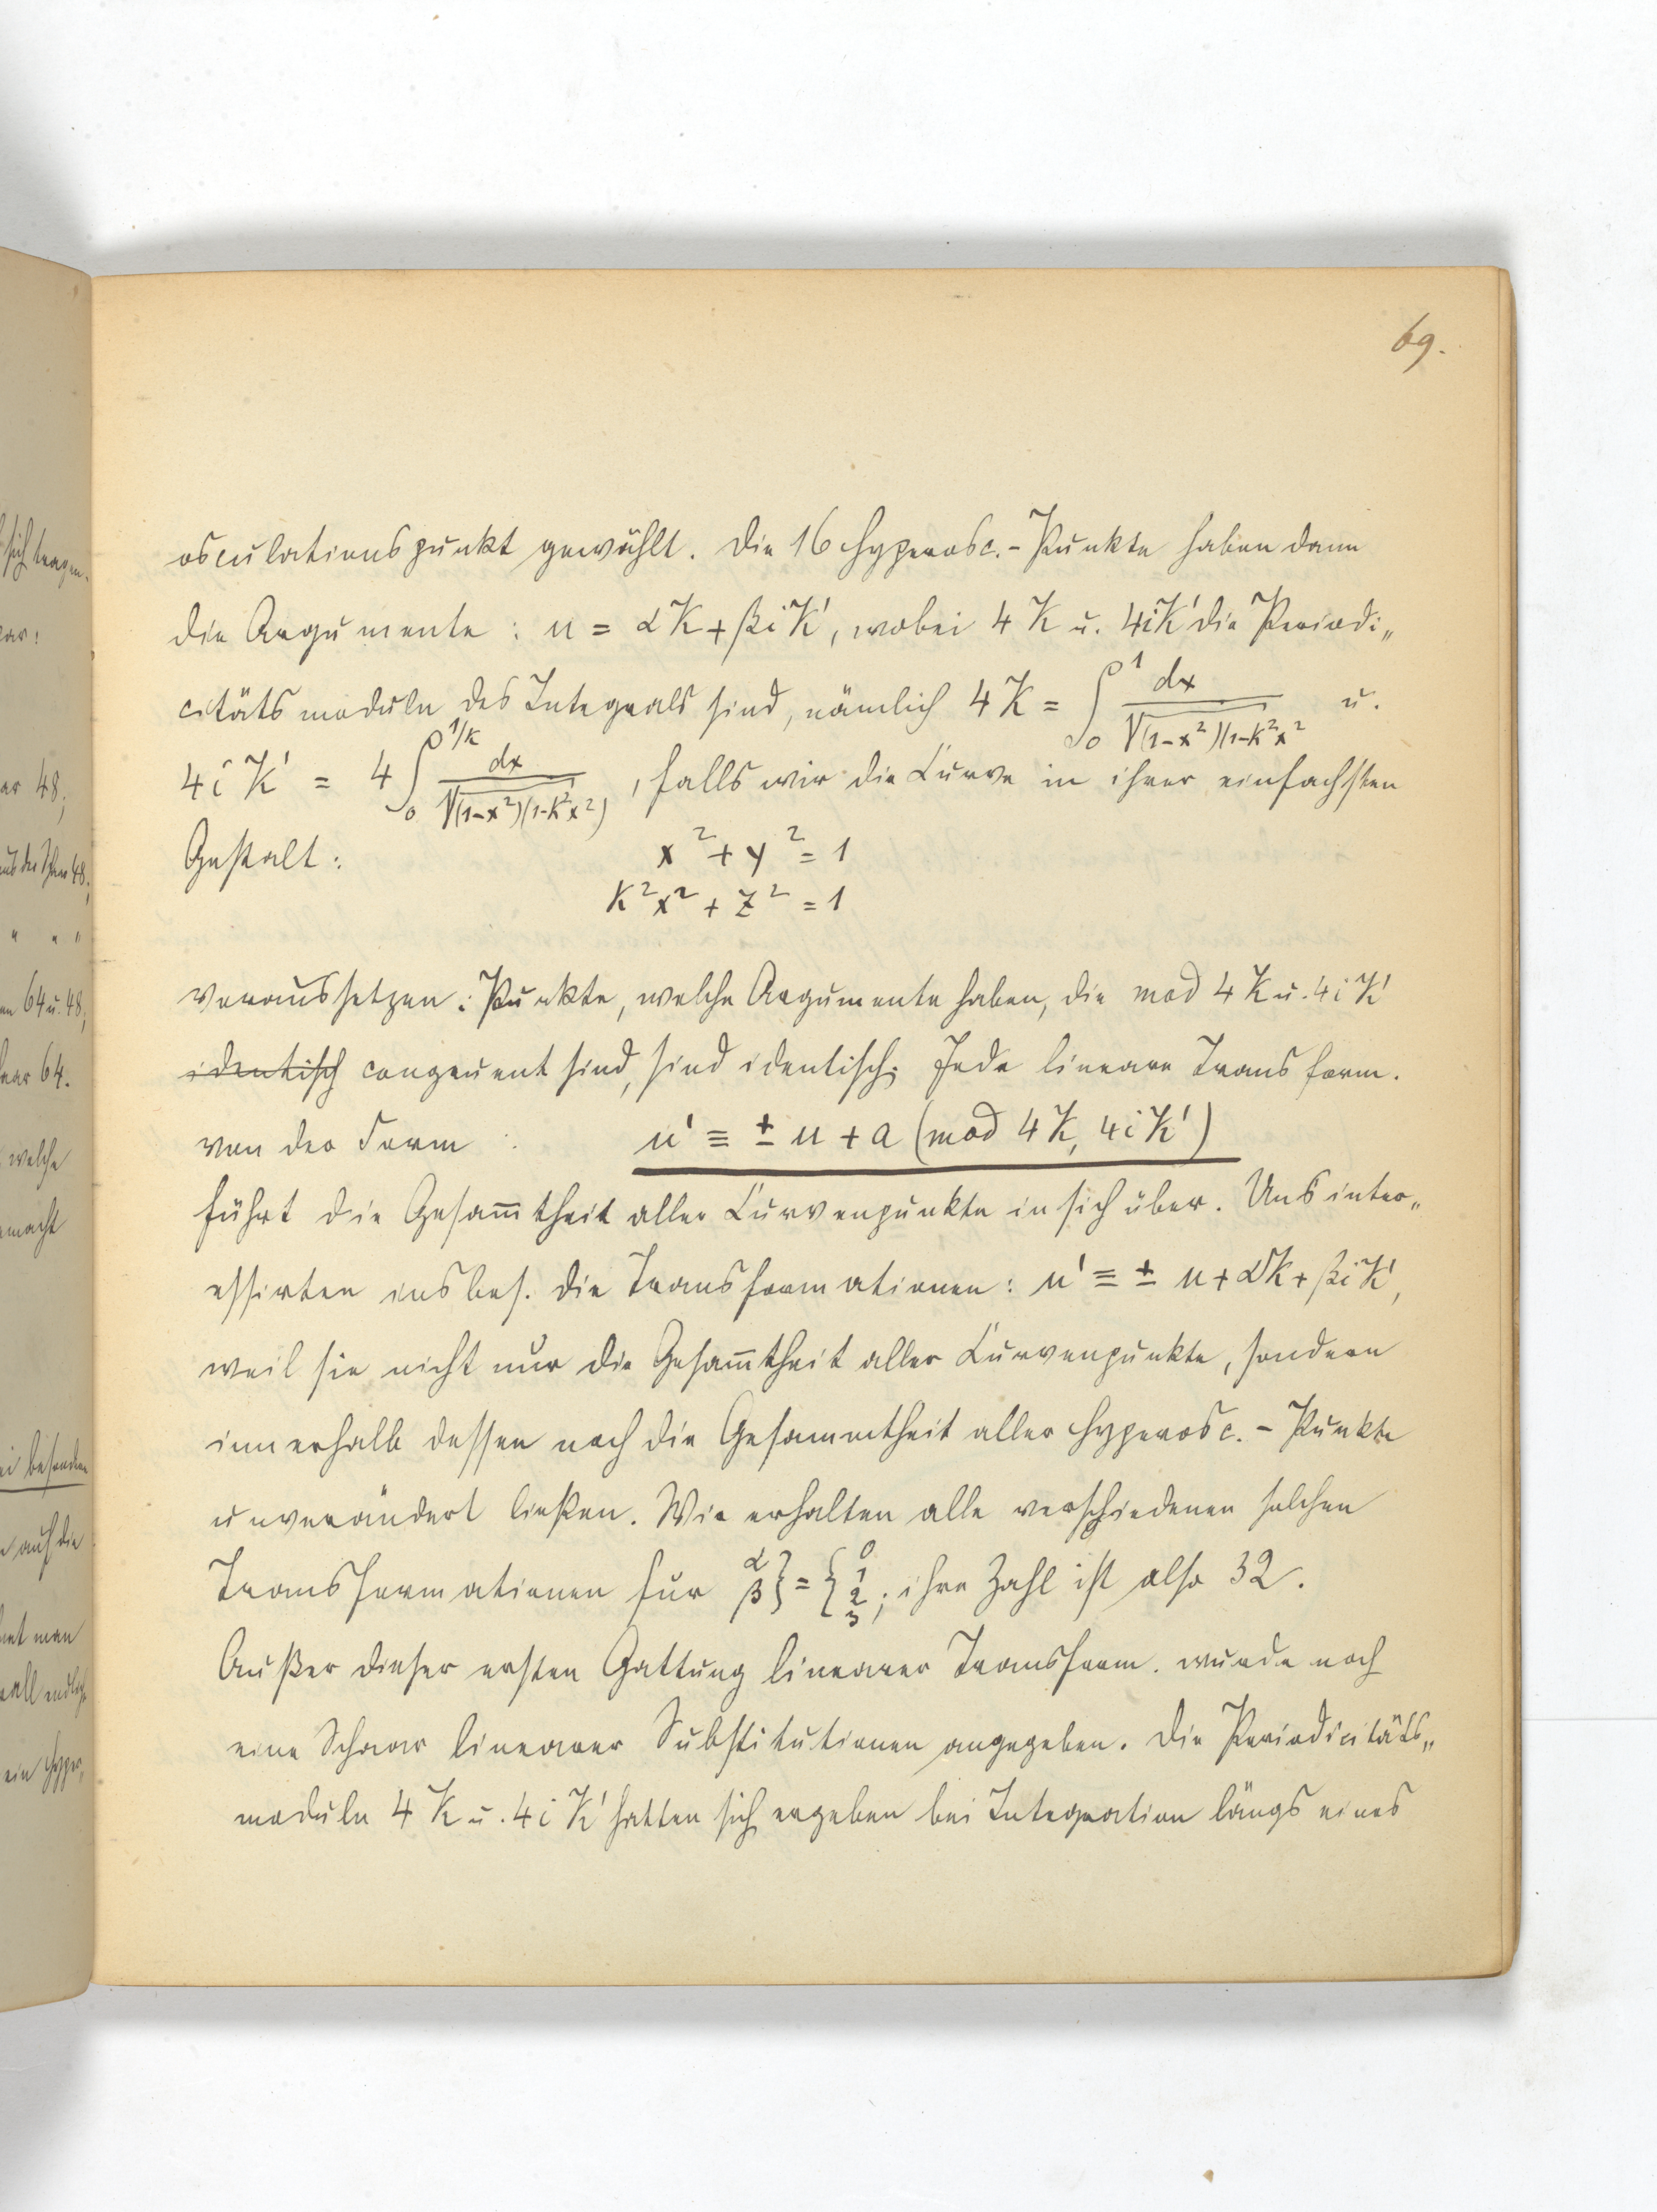 69.
osculationspunkt gewählt. Die 16 Hyperosc.-Punkte haben dann
die Argumente : u = αK + βiK', wobei 4K u. 4iK' die Periodi„
citätsmoduln des Integrals sind, nämlich 4K = ∫₀¹ dx/√(1-x²)(1-k²x² u.
4iK' = 4∫₀^{1/k} dx/√(1-x²)(1-k²x²) , falls wir die Curve in ihrer einfachsten
Gestalt : x² + y² = 1
k²x² + z² = 1
voraussetzen : Punkte, welche Argumente haben, die mod 4K u. 4iK'
identisch congruent sind, sind identisch. Jede lineare Transform.
von der Form : u' ≡ ± u + a (mod 4K, 4iK')
führt die Gesam̅theit aller Curvenpunkte in sich über. Uns inter„
essirten insbes. die Transformationen : u' ≡ ± u + αK + βiK',
weil sie nicht nur die Gesam̅theit aller Curvenpunkte, sondern
innerhalb dessen noch die Gesammtheit aller Hyperosc. - Punkte
unverändert ließen. Wir erhalten alle verschiedenen solchen
Transformationen für α β} = {0 1 2 3 ; ihre Zahl ist also 32.
Außer dieser ersten Gattung linearer Transform. wurde noch
eine Schaar linearer Substitutionen angegeben. Die Periodicitäts„
moduln 4K u. 4iK' hatten sich ergeben bei Integration längs eines